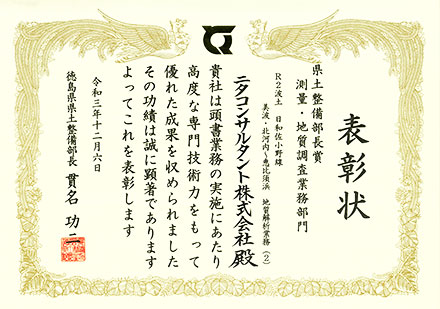 表彰状
県土整備部長賞
測量・地質調査業務部門
R2波土 日和佐小野線
美波・北河内~恵比須浜 地質解析業務(2)
ニタコンサルタント株式会社 殿
貴社は頭書業務の実施にあたり
高度な専門技術力をもって
優れた成果を収められました
その功績は誠に顕著であります
よってこれを表彰します
令和三年十二月六日
徳島県県土整備部長 貫名 功二